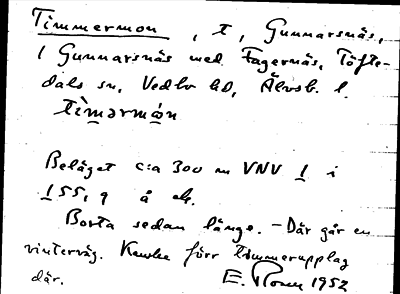 Timmermon, t, Gunnarsnäs,
1 Gunnarsnäs med Fagernäs, Töfte-
dals sn, Vedbo hd, Älvsb. l.
timərmón
Beläget c:a 300 m VNV 1 i
155, 9 å ek.
Borta sedan länge. - Där går en
vinterväg. Kanske förr timmerupplag
där. E. Rosen 1952